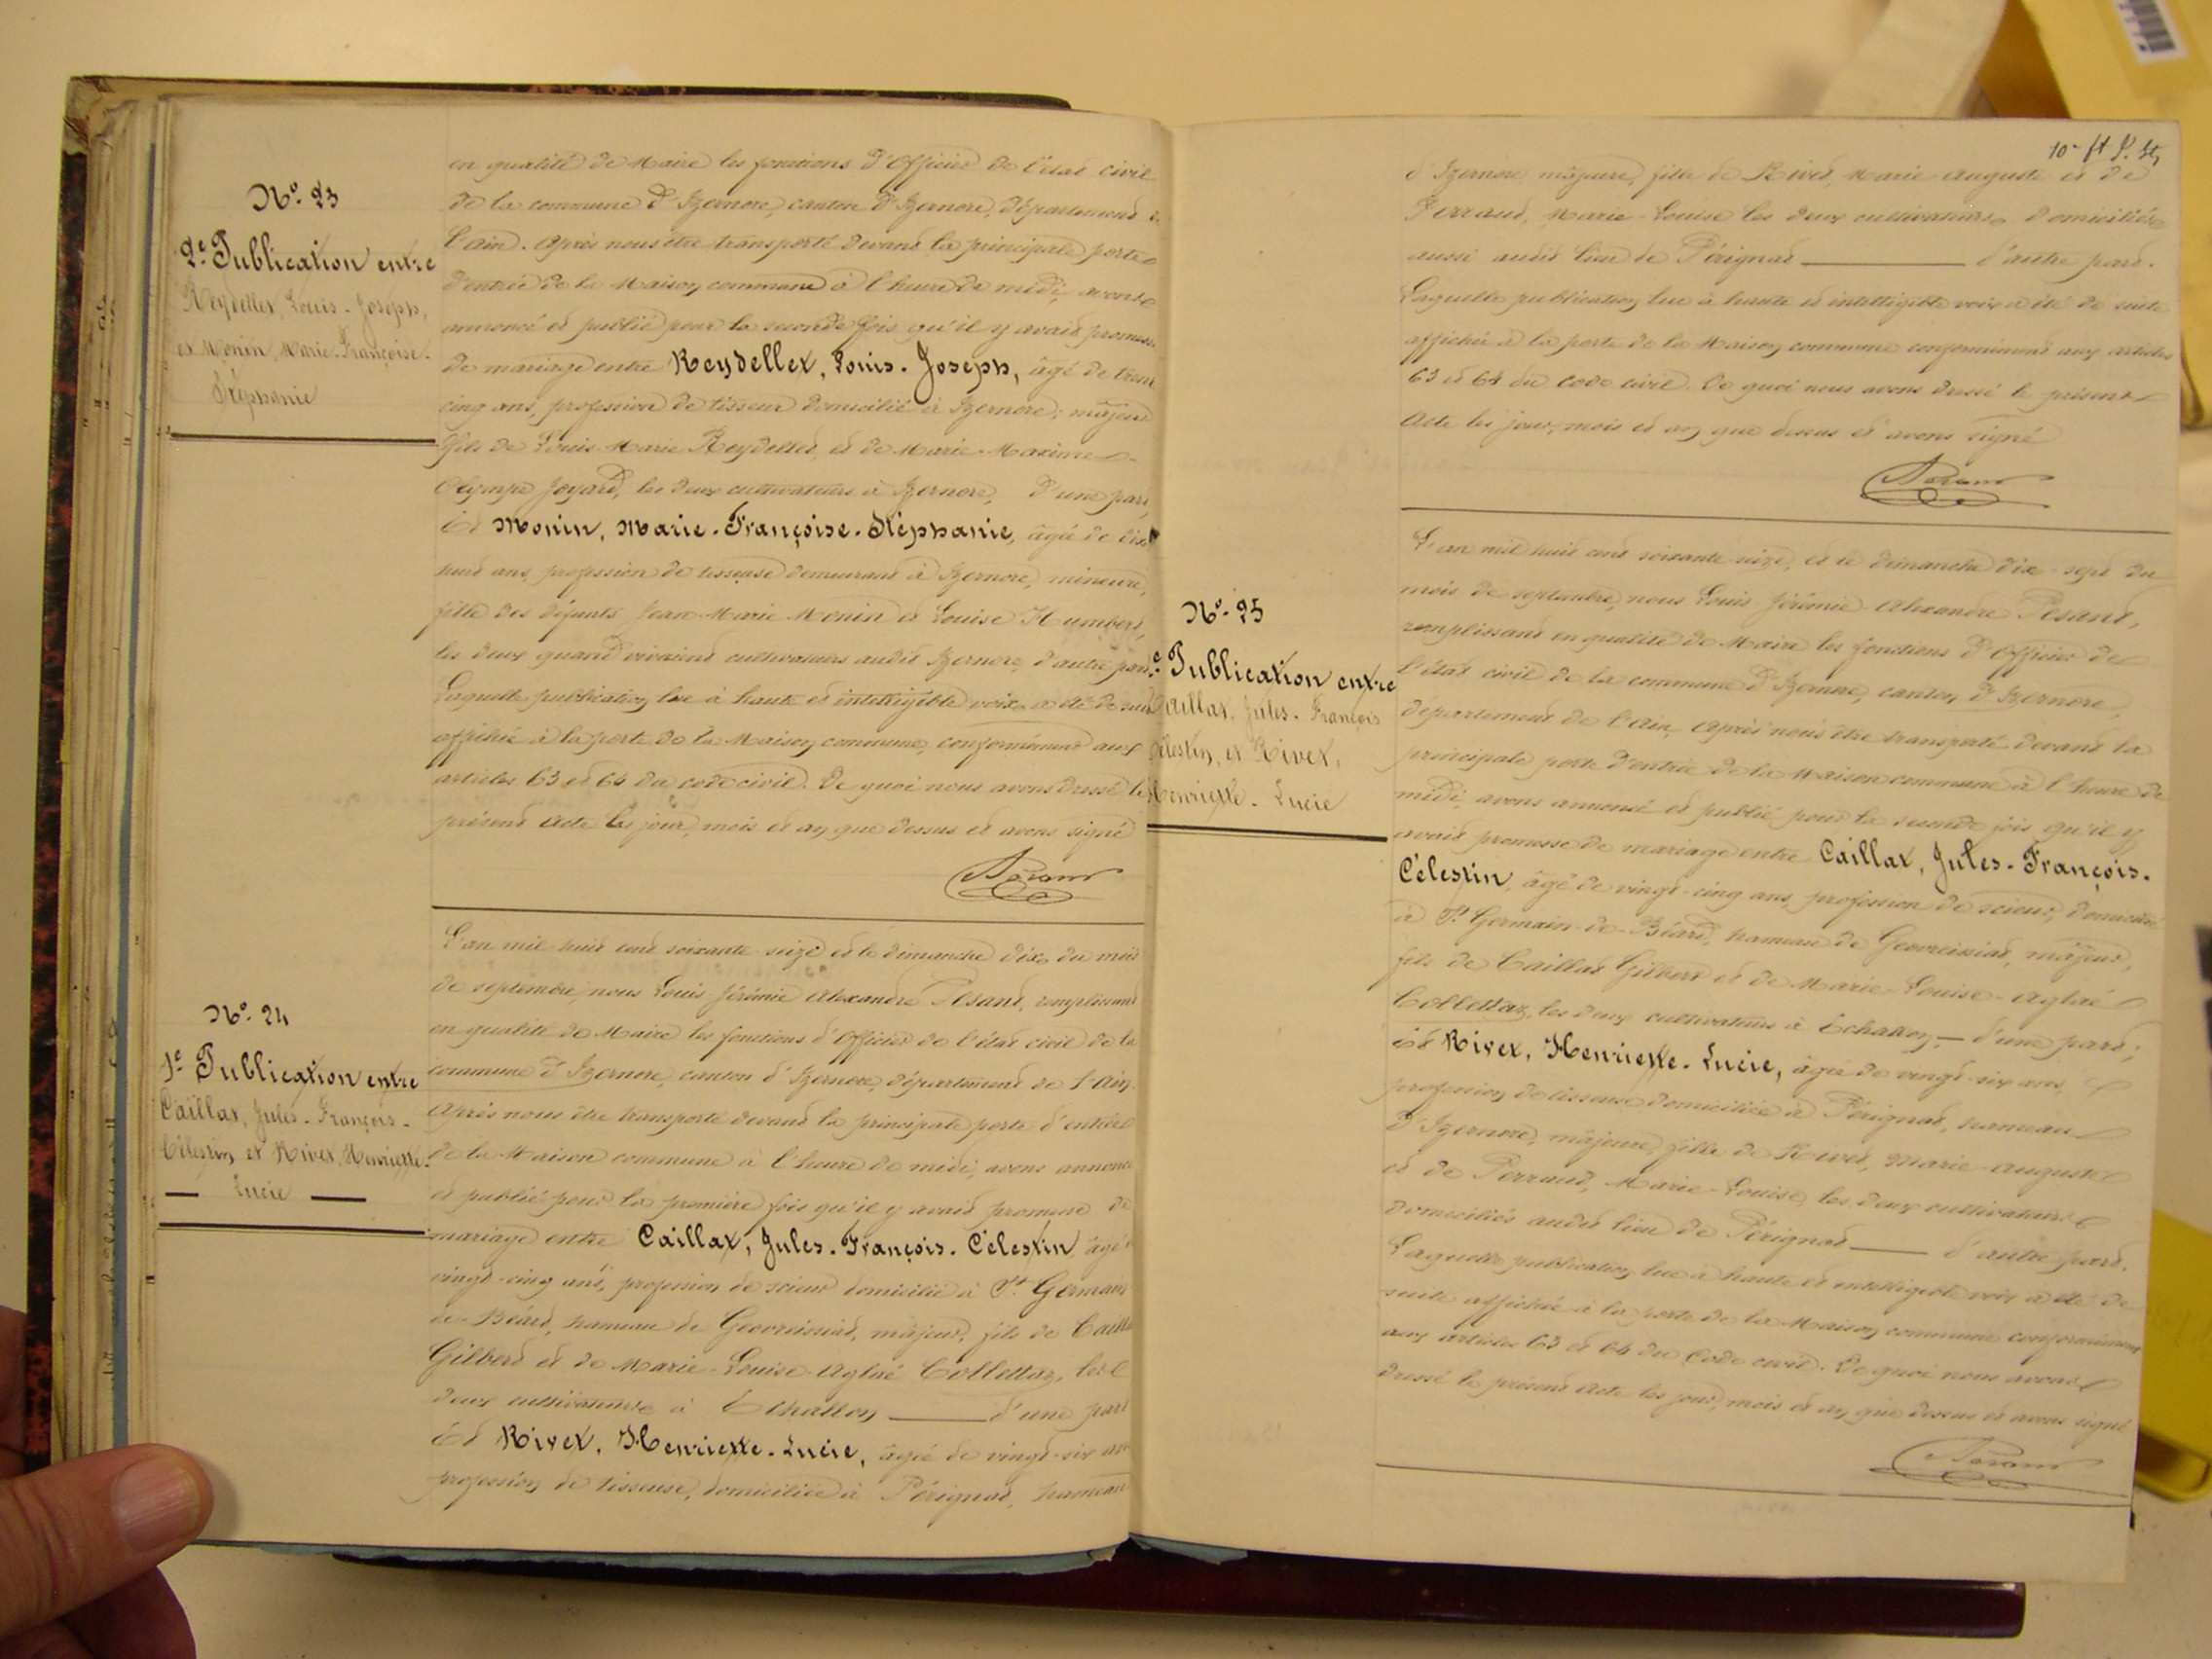 N°. 23
2e. Publication entre
Reydellet, Louis-Joseph,
et Monin, Marie-Françoise-
Stéphanie
en qualité de Maire les fonctions d'Officier de l'état civil
de la commune d'Izernore, canton d'Izernore, département de
l'Ain. Après nous être transporté devant la principale porte
d'entrée de la Maison commune à l'heure de midi, avons
annoncé et publié pour la seconde fois qu'il y avait promesse
de mariage entre Reydellet, Louis-Joseph, âgé de trente
cinq ans, profession de tisseur domicilié à Izernore; majeur
fils de Louis Marie Reydellet, et de Marie Maxime
Olympe Joyard, les deux cultivateurs à Izernore, d'une part,
Et Monin, Marie-Françoise-Stéphanie, âgée de dix
huit ans, profession de tisseuse demeurant à Izernore, mineure,
fille des défunts Jean Marie Monin et Louise Humbert,
les deux quand vivaient cultivateurs audit Izernore, d'autre part.
Laquelle publication lue à haute et intelligible voix a été de suite
affichée à la porte de la Maison commune, conformément aux
articles 63 et 64 du code civil. De quoi nous avons dressé le
présent Acte les jour, mois et an que dessus et avons signé
N°. 24
1e Publication entre
Caillat, Jules-François-
Célestin et Rivet, Henriette-
Lucie
L'an mil huit cent soixante seize et le dimanche dix du mois
de septembre, nous Louis Jérémie Alexandre Pesant, remplissant
en qualité de Maire les fonctions d'Officier de l'état civil de la
commune d'Izernore, canton d'Izernore, département de l'Ain.
Après nous être transporté devant la principale porte d'entrée
de la Maison commune à l'heure de midi, avons annoncé
et publié pour la première fois qu'il y avait promesse de
mariage entre Caillat, Jules-François-Célestin âgé
vingt-cinq ans, profession de scieur domicilié à St Germain
de-Béard, hameau de Geovreissiat, majeur, fils de Caillat
Gilbert et de Marie-Louise Aglaé Collettaz, les
deux cultivateurs à Echallon d'une part
Et Rivet, Henriette-Lucie, âgée de vingt-six ans
profession de tisseuse, domiciliée à Pérignat, hameau
10e ft P. St
d'Izernore majeure, fille de Rivet, Marie Auguste et de
Perraud, Marie-Louise les deux cultivateurs domiciliés
aussi audit lieu de Pérignat d'autre part.
Laquelle publication lue à haute et intelligible voix a été de suite
affichée à la porte de la Maison commune conformément aux articles
63 et 64 du Code civil. De quoi nous avons dressé le présent
Acte les jour, mois et an que dessus et avons signé
N°. 25
e. Publication entre
Caillat, Jules-François
Célestin, et Rivet,
Henriette-Lucie
L'an mil huit cent soixante seize, et le dimanche dix-sept du
mois de septembre, nous Louis Jérémie Alexandre Pesant,
remplissant en qualité de Maire les fonctions d'Officier de
l'état civil de la commune d'Izernore, canton d'Izernore,
département de l'Ain, Après nous être transporté devant la
principale porte d'entrée de la Maison commune à l'heure de
midi, avons annoncé et publié pour la seconde fois qu'il y
avait promesse de mariage entre Caillat, Jules-François-
Célestin, âgé de vingt-cinq ans, profession de scieur, domicilié
à St Germain-de-Béard, hameau de Geovreissiat, majeur,
fils de Caillat Gilbert et de Marie-Louise-Aglaé
Collettaz, les deux cultivateurs à Echallon, d'une part;
Et Rivet, Henriette-Lucie, âgée de vingt-six ans,
profession de tisseuse domiciliée à Pérignat, hameau
d'Izernore, majeure, fille de Rivet, Marie-Auguste
et de Perraud, Marie-Louise, les deux cultivateurs
domiciliés audit lieu de Pérignat d'autre part.
Laquelle publication lue à haute et intelligible voix a été de
suite affichée à la porte de la Maison commune conformément
aux articles 63 et 64 du Code civil. De quoi nous avons
dressé le présent Acte les jour, mois et an que dessus et avons signé